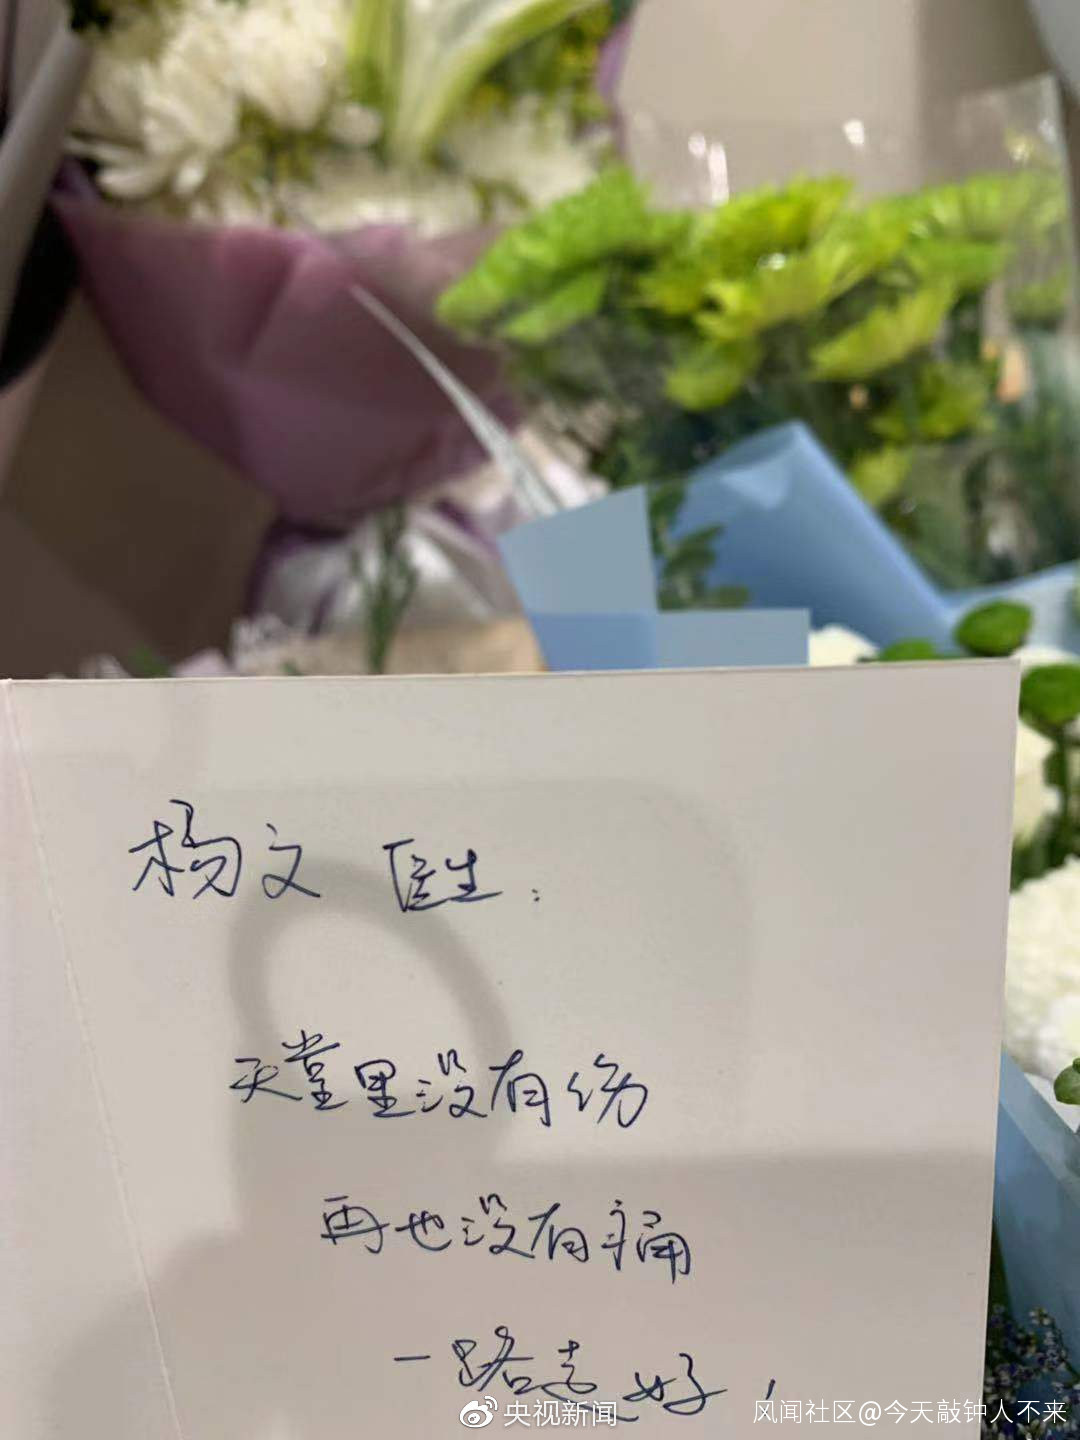 杨文 医生：
天堂里没有伤
再也没有痛
一路走好！
央视新闻
风闻社区@今天敲钟人不来